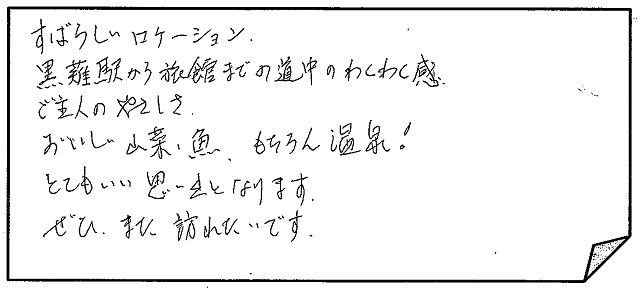 すばらしいロケーション.
黒薙駅から旅館までの道中のわくわく感.
ご主人のやさしさ.
おいしい山菜、魚、もちろん温泉!
とてもいい思い出となります.
ぜひ、また訪れたいです.